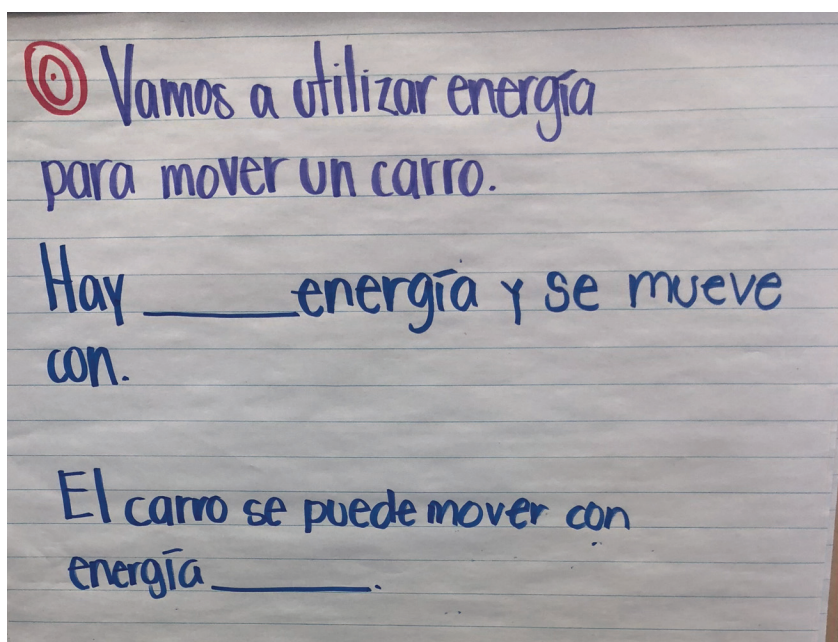 Vamos a utilizar energía
para mover un carro.
Hay ______ energía y se mueve
con.
El carro se puede mover con
energía ______.